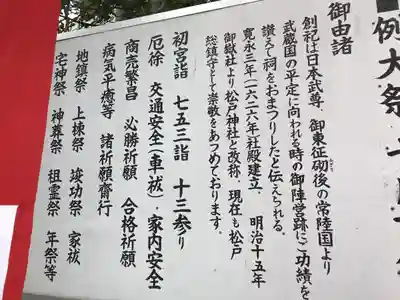 例大祭
御由諸
創祀は日本武尊、御東征砌後の常陸国より
武蔵国の平定に向われる時の御陣営跡にご功績を
讃えて祠をおまつりしたと伝えられる。
寛永三年(一六二六年)社殿建立、明治十五年
御嶽社より松戸神社と改称、現在も松戸
総鎮守として崇敬をあつめております。
初宮詣 七五三詣 十三参り
厄徐 交通安全(車祓)・家内安全
商売繁昌 必勝祈願 合格祈願
病気平癒等 諸祈願斎行
地鎮祭 上棟祭 竣功祭 家祓
宅神祭 神葬祭 祖霊祭 年祭等